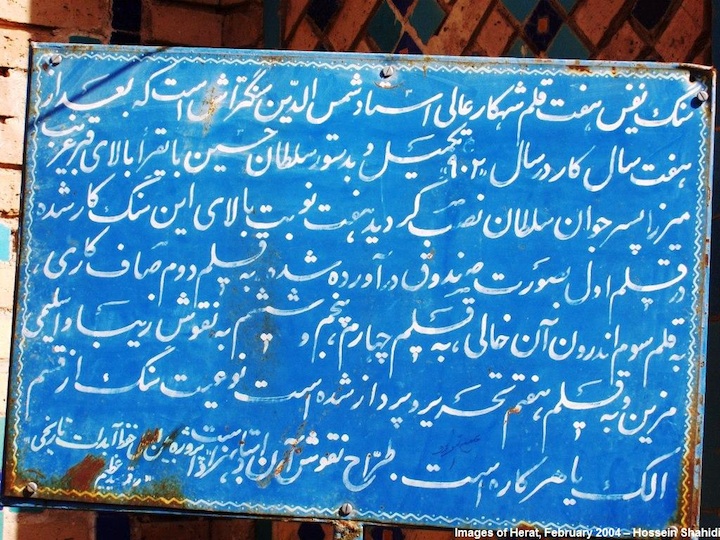 سنگ نفیس هفت قلم شهکار عالی استاد شمس الدین سنگتراش است که بعد از
هفت سال کار در سال "۹۰۲" تکمیل و بدستور سلطان حسین بایقرا بالای قبر غریب
میرزا پسر جوان سلطان نصب گردید هفت نوبت بالای این سنگ کار شده
در قلم اول بصورت صندوق در آورده شده، به قلم دوم صاف کاری،
به قلم سوم اندرون آن خالی، به قلم چهارم، پنجم و ششم به نقوش زیبا و اسلیمی
مزین و به قلم هفتم تحریر و پرداز شده است نوعیت سنگ از قسم
الک یا مرکاره است. طراح نقوش آن استاد بهزاد است
حفظ آبدات تاریخی
Images of Herat, February 2004 – Hossein Shahidi